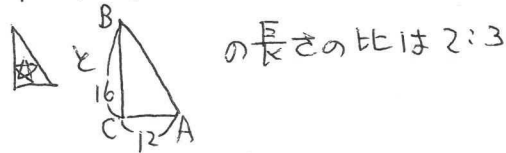 ☆ と
B
16
C 12 A
の長さの比は 2:3